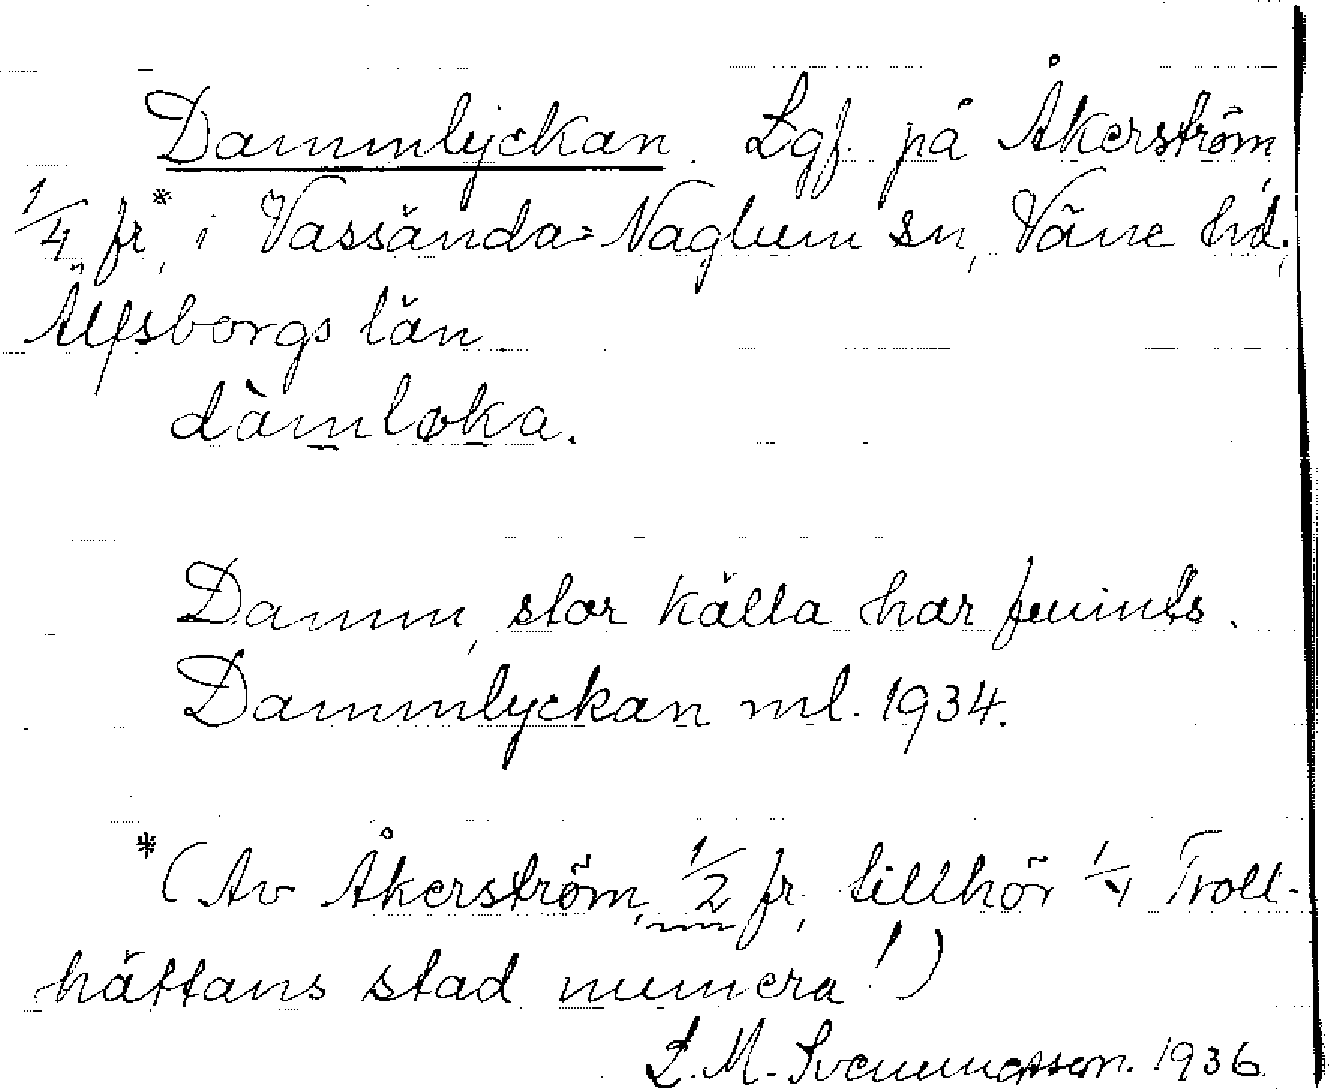 Dammlyckan. Lgf. på Åkerström,
1/4 fr*, i Vassända-Naglum sn, Väne hd,
Älfsborgs län
dàmløka.
Damm, stor källa har funnits.
Dammlyckan ml. 1934.
*(Av Åkerström, 1/2 fr, tillhör 1/4 Troll-
hättans stad numera!)
L. M. Svenungsson. 1936